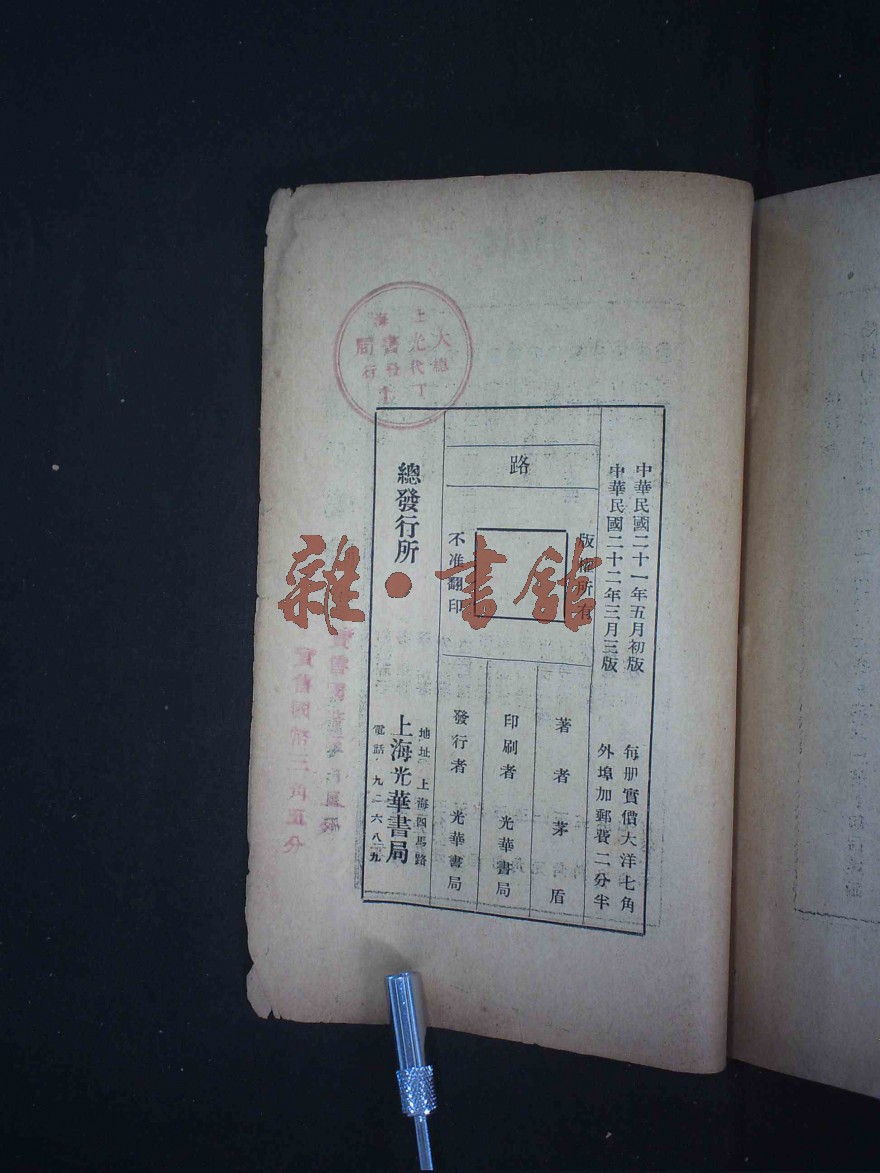 中華民國二十一年五月初版
中華民國二十二年三月三版
每册實價大洋七角
外埠加郵費二分半
路
版權所有
不准翻印
著者 茅盾
印刷者 光華書局
發行者 光華書局
總發行所
地址 上海四馬路
上海光華書局
電話・九二六八九
上海
大光書局
總代發行
雜・書館